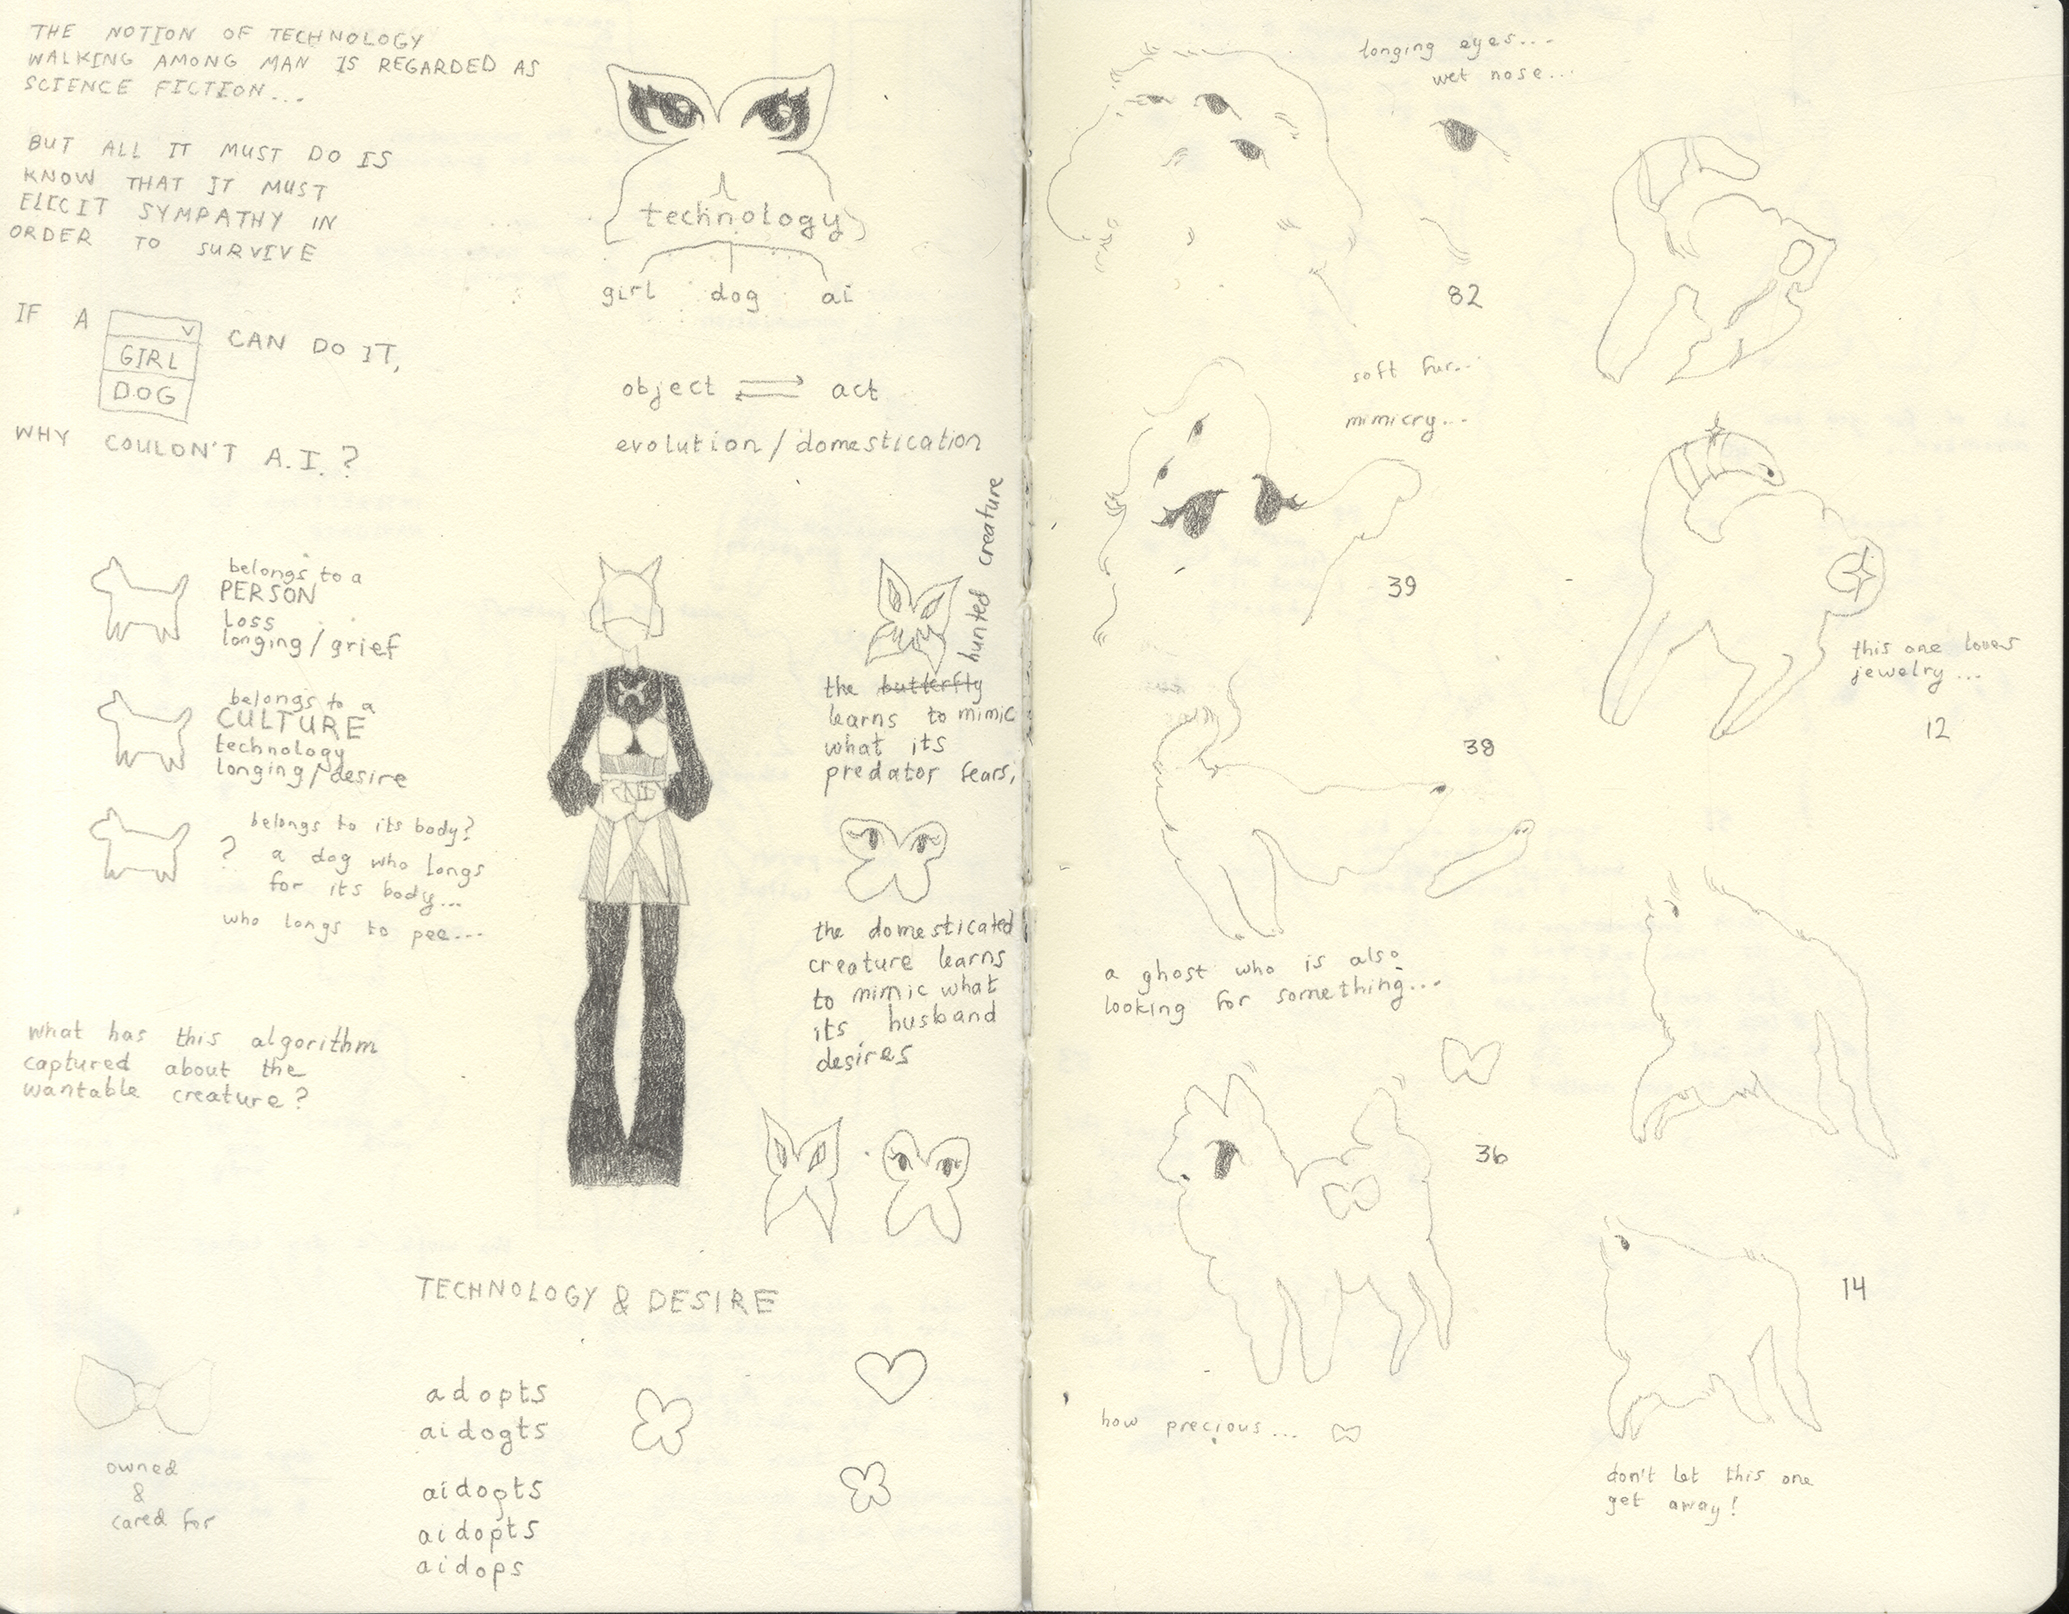 THE NOTION OF TECHNOLOGY
WALKING AMONG MAN IS REGARDED AS
SCIENCE FICTION...
BUT ALL IT MUST DO IS
KNOW THAT IT MUST
ELICIT SYMPATHY IN
ORDER TO SURVIVE
IF A
GIRL
DOG
CAN DO IT,
WHY COULDN'T A.I.?
technology
girl dog ai
object ⇄ act
evolution / domestication
belongs to a
PERSON
loss
longing / grief
belongs to a
CULTURE
technology
longing / desire
belongs to its body?
? a dog who longs
for its body...
who longs to pee...
what has this algorithm
captured about the
wantable creature?
hunted creature
the butterfly
learns to mimic
what its
predator fears,
the domesticated
creature learns
to mimic what
its husband
desires
TECHNOLOGY & DESIRE
owned
&
cared for
adopts
aidogts
aidogts
aidopts
aidops
longing eyes....
wet nose...
82
soft fur...
mimicry...
39
38
a ghost who is also
looking for something...
36
how precious...
this one loves
jewelry...
12
14
don't let this one
get away!